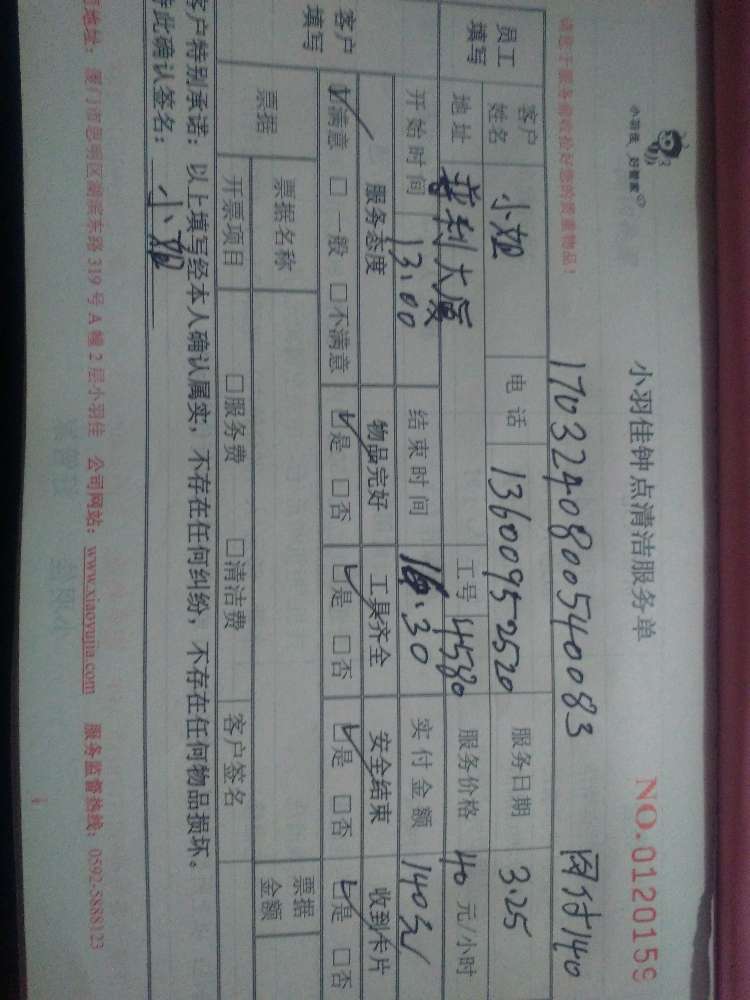 小羽佳 好管家
小羽佳钟点清洁服务单
NO.012015
请您于服务前收拾好您的贵重物品！
1703240800540083
网付140
员工填写
客户姓名 小姐 电话 13600952520 服务日期 3.25
地址 利大厦 工号 4580 服务价格 40 元/小时
开始时间 13:00 结束时间 16.30 实付金额 140元
客户填写
服务态度 物品完好 工具齐全 安全结束 收到卡片
☑满意 □一般 □不满意 ☑是 □否 ☑是 □否 ☑是 □否 ☑是 □否
票据 票据名称 票据金额
开票项目 □服务费 □清洁费 客户签名
客户特别承诺：以上填写经本人确认属实，不存在任何纠纷，不存在任何物品损坏。
特此确认签名：小姐
地址：厦门市思明区湖滨东路 319 号 A 幢 2 层小羽佳 公司网站：www.xiaoyujia.com 服务监督热线：0592-5888123